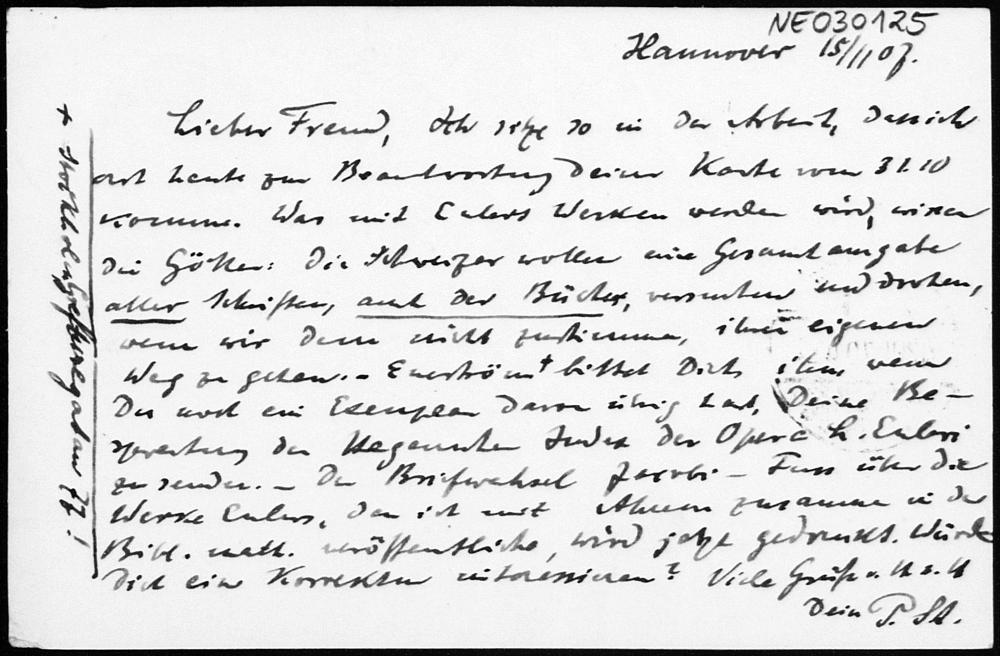 NE030125
Hannover 15/11 07.
Lieber Freund, Ich sitze so in der Arbeit, dass ich
erst heute zur Beantwortung Deiner Karte vom 31.10
komme. Was mit Eulers Werken werden wird, wissen
die Götter: die Schweizer wollen eine Gesamtausgabe
aller Schriften, auch der Bücher, versuchen und drohen,
wenn wir dem nicht zustimmen, ihren eigenen
Weg zu gehen. – Eneström+ bittet Dich, ihm, wenn
Du noch ein Exemplar davon übrig hast, Deine Be-
sprechung des Hagenschen Index der Opera L. Euleri
zu senden. – Der Briefwechsel Jacobi – Fuss über die
Werke Eulers, den ich mit Ahrens zusammen in der
Bibl. math. veröffentliche, wird jetzt gedruckt. Würde
Dich eine Korrektur interessieren? Viele Grüße v. H. z. H.
Dein P. St.
+ Stockholm, Grefturegatan 77!